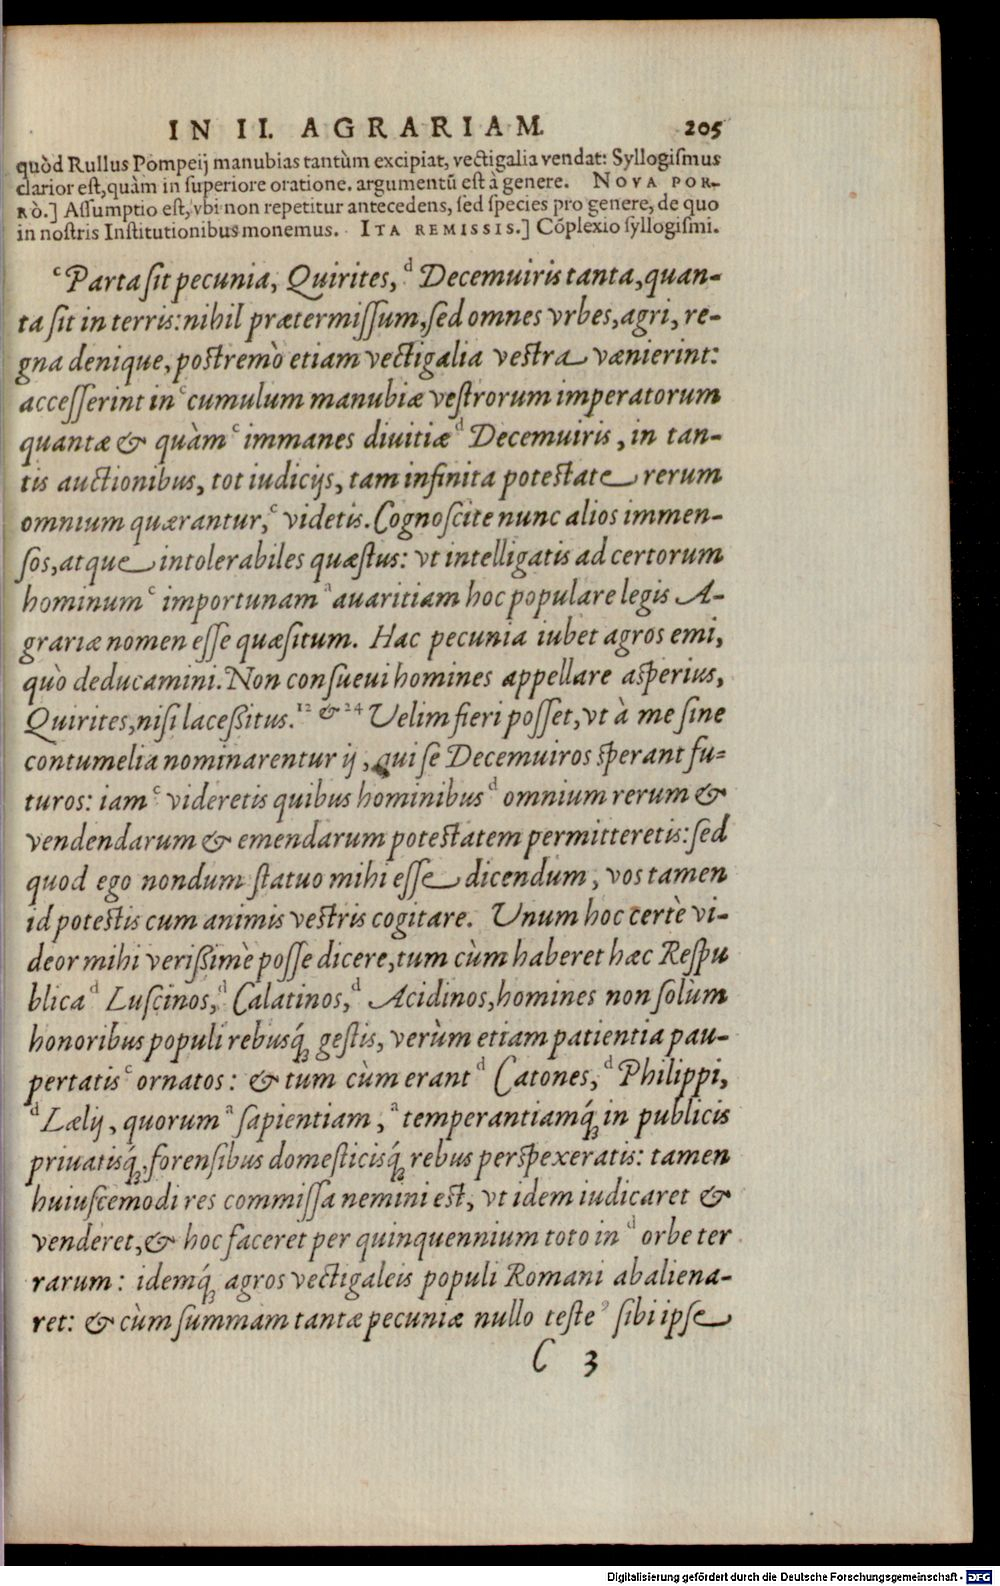 IN II. AGRARIAM. 205
quòd Rullus Pompeij manubias tantùm excipiat, vectigalia vendat: Syllogiſmus
clarior eſt, quàm in ſuperiore oratione. argumentũ eſt à genere. NOVA POR-
RÒ.] Aſſumptio eſt, vbi non repetitur antecedens, ſed ſpecies pro genere, de quo
in noſtris Inſtitutionibus monemus. ITA REMISSIS.] Cõplexio ſyllogiſmi.
c Parta ſit pecunia, Quirites, d Decemuiris tanta, quan-
ta ſit in terris: nihil prætermiſſum, ſed omnes vrbes, agri, re-
gna denique, poſtremò etiam vectigalia veſtra vænierint:
acceſſerint in c cumulum manubiæ veſtrorum imperatorum
quantæ & quàm c immanes diuitiæ d Decemuiris, in tan-
tis auctionibus, tot iudicijs, tam infinita poteſtate rerum
omnium quærantur, c videtis. Cognoſcite nunc alios immen-
ſos, atque intolerabiles quæſtus: vt intelligatis ad certorum
hominum c importunam a auaritiam hoc populare legis A-
grariæ nomen eſſe quæſitum. Hac pecunia iubet agros emi,
quò deducamini. Non conſueui homines appellare aſperius,
Quirites, niſi laceßitus. 12 & 24 Velim fieri poſſet, vt à me ſine
contumelia nominarentur ij, qui ſe Decemuiros ſperant fu-
turos: iam c videretis quibus hominibus d omnium rerum &
vendendarum & emendarum poteſtatem permitteretis: ſed
quod ego nondum ſtatuo mihi eſſe dicendum, vos tamen
id poteſtis cum animis veſtris cogitare. Unum hoc certè vi-
deor mihi verißimè poſſe dicere, tum cùm haberet hæc Reſpu
blica d Luſcinos, d Calatinos, d Acidinos, homines non ſolùm
honoribus populi rebusq́ꝫ geſtis, verùm etiam patientia pau-
pertatis c ornatos: & tum cùm erant d Catones, d Philippi,
d Lælij, quorum a ſapientiam, a temperantiamq́ꝫ in publicis
priuatisq́ꝫ, forenſibus domeſticisq́ꝫ rebus perſpexeratis: tamen
huiuſcemodi res commiſſa nemini eſt, vt idem iudicaret &
venderet, & hoc faceret per quinquennium toto in d orbe ter
rarum: idemq́ꝫ agros vectigaleis populi Romani abaliena-
ret: & cùm ſummam tantæ pecuniæ nullo teſte ſibi ipſe
C 3
Digitalisierung gefördert durch die Deutsche Forschungsgemeinschaft - DFG